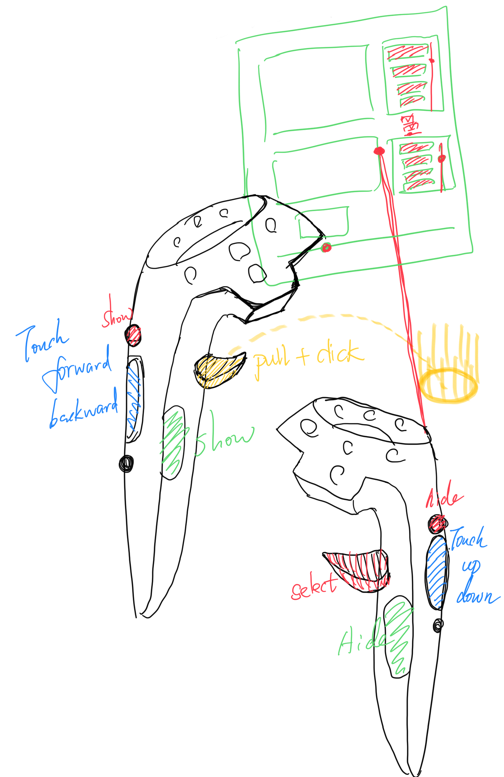 show
Touch
forward
backward
pull + click
show
hide
Touch
up
down
select
Hide